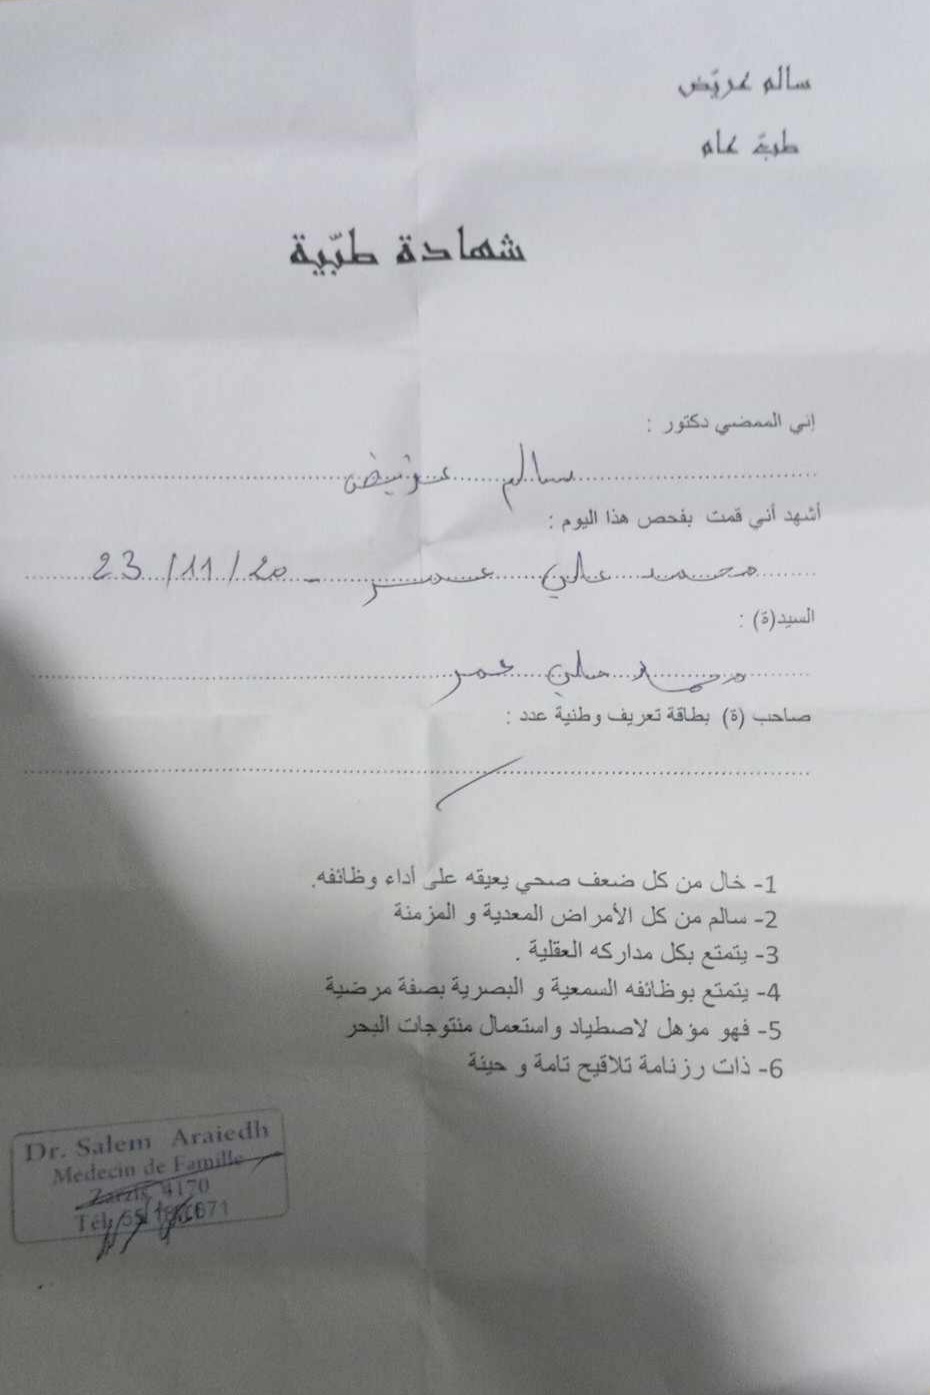 سالم عريّض
طبّ عام
شهادة طبّية
إني الممضي دكتور :
سالم عريض
أشهد أني قمت بفحص هذا اليوم :
محمد علي عمر - 23/11/20
السيد(ة) :
محمد علي عمر
صاحب (ة) بطاقة تعريف وطنية عدد :
1- خال من كل ضعف صحي يعيقه على أداء وظائفه.
2- سالم من كل الأمراض المعدية و المزمنة
3- يتمتع بكل مداركه العقلية .
4- يتمتع بوظائفه السمعية و البصرية بصفة مرضية
5- فهو مؤهل لاصطياد واستعمال منتوجات البحر
6- ذات رزنامة تلاقيح تامة و حينة
Dr. Salem Araiedh
Médecin de Famille
Zarzis 4170
Tél: